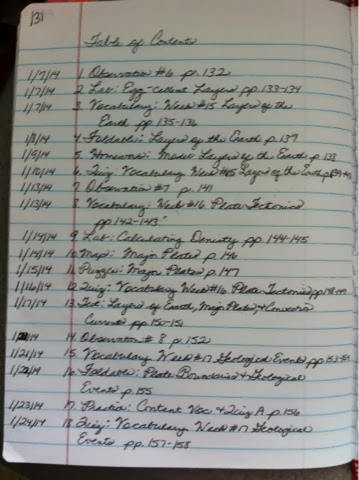 131
Table of Contents
1/7/14 1. Observation #6 p. 132
1/7/14 2. Lab: Egg-cellent Layers pp. 133-134
1/7/14 3. Vocabulary: Week #15 Layers of the
Earth pp 135-136
1/8/14 4. Foldable: Layers of the Earth p. 137
5. Homework: Model Layers of the Earth p. 138
1/10/14 6. Quiz: Vocabulary Week #15 Layers of the Earth
1/13/14 7. Observation #7 p. 141
1/13/14 8. Vocabulary: Week #16 Plate Tectonics
pp 142-143
1/14/14 9. Lab: Calculating Density pp. 144-145
1/14/14 10. Map: Major Plates p. 146
1/15/14 11. Puzzle: Major Plates p. 147
1/16/14 12. Quiz: Vocabulary Week #16 Plate Tectonics pp 148-149
1/17/14 13. Test: Layers of Earth, Major Plates, + Convection
Currents pp 150-151
14. Observation # 8 p. 152
1/21/14 15. Vocabulary Week #17 Geological Events pp 153-154
16. Foldable: Plate Boundaries + Geological
Events p. 155
1/23/14 17. Practice: Content Voc + Quiz A p. 156
1/24/14 18. Quiz: Vocabulary Week #17 Geological
Events pp. 157-158